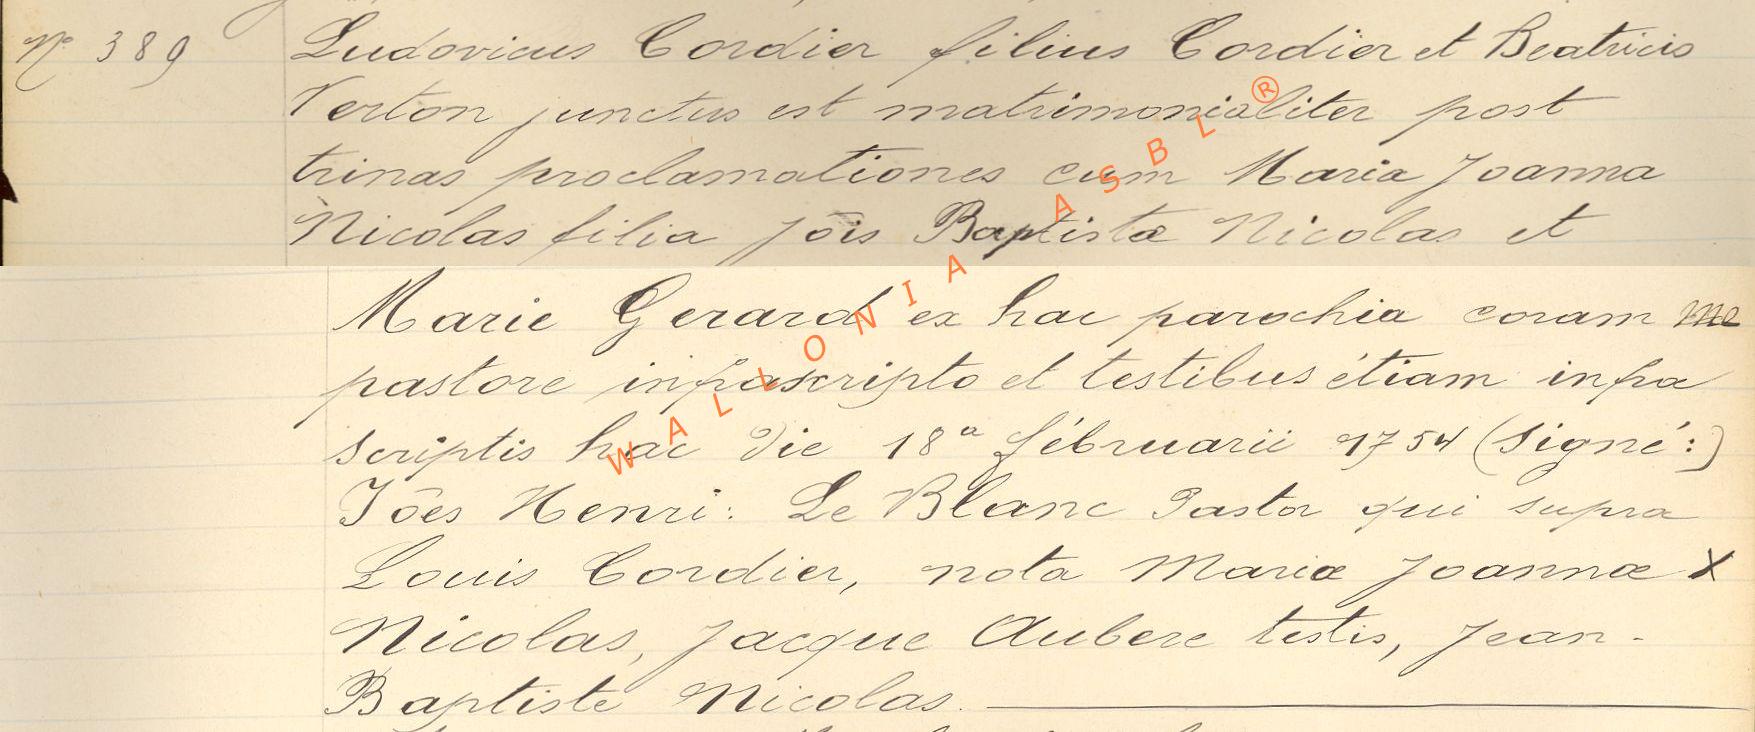 N° 389 Ludovicus Cordier filius Cordier et Beatricis
Verton junctus est matrimonialiter post
trinas proclamationes cum Maria Joanna
Nicolas filia Jōis Baptistæ Nicolas et
Marie Gerard ex hac parochia coram me
pastore infrascripto et testibus étiam infra
scriptis hac die 18a fébruarii 1754 (signé:)
Jōes Henri: Le Blanc Pastor qui supra
Louis Cordier, nota Mariæ Joannæ X
Nicolas, Jacque Aubere testis, Jean-
Baptiste Nicolas.
WALLONIA ASBL ®